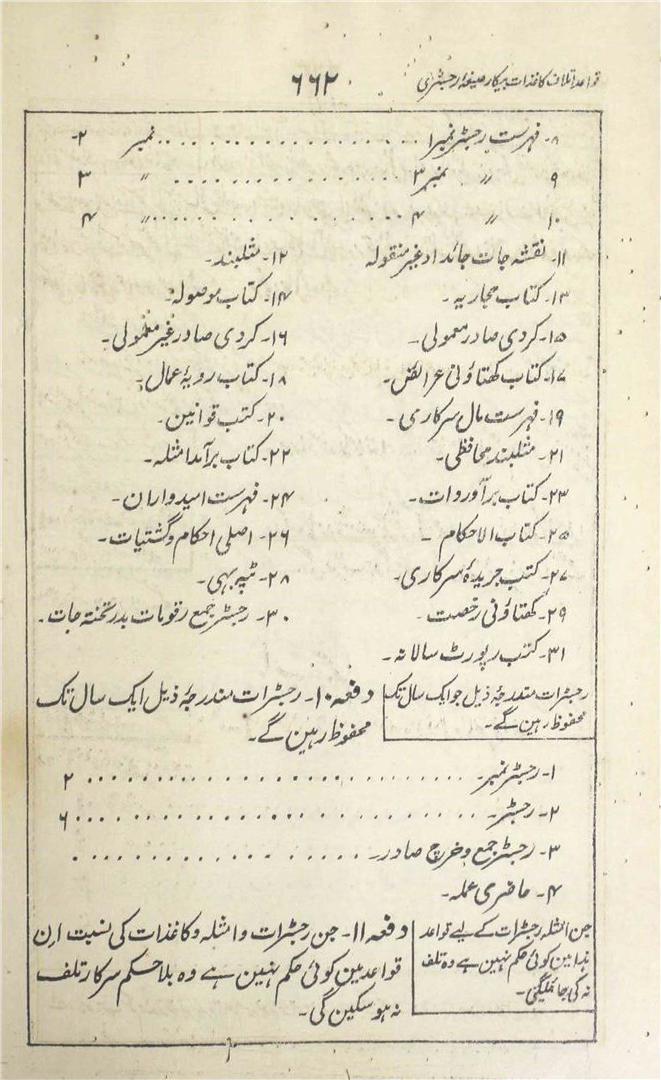 قواعد اتلاف کاغذات بیکار صیغہ رجسٹری
۶۶۲
۸- فہرست رجسٹر نمبر ۱ .................... نمبر ۲-
۹ 〃 نمبر ۳ .................... 〃 ۳
۱۰ 〃 ۴ .................... 〃 ۴
۱۱- نقشہ جات جائداد غیر منقولہ ۱۲- مثلبند-
۱۳- کتاب مجاریہ- ۱۴- کتاب موصولہ-
۱۵- کردی صادر معمولی- ۱۶- کردی صادر غیر معمولی-
۱۷- کتاب کھتاونی عرائض- ۱۸- کتاب رویۂ عمال-
۱۹- فہرست مال سرکاری- ۲۰- کتب قوانین-
۲۱- مثلبند محافظی- ۲۲- کتاب برآمد امثلہ-
۲۳- کتاب برآوردات- ۲۴- فہرست امیدواران-
۲۵- کتاب الاحکام - ۲۶- اصلی احکام وگشتیات-
۲۷- کتب جریدۂ سرکاری- ۲۸- ٹپہ بہی-
۲۹- کھتاونی رخصت- ۳۰- رجسٹر جمع رقومات بدر تختہ جات-
۳۱- کتب رپورٹ سالانہ-
رجسٹرات مندرجۂ ذیل جو ایک سال تک
محفوظ رہین گے-
دفعہ ۱۰- رجسٹرات مندرجۂ ذیل ایک سال تک
محفوظ رہین گے-
۱- رجسٹر نمبر .................... ۲
۲- رجسٹر .................... ۶
۳- رجسٹر جمع وخرچ صادر ....................
۴- حاضری عملہ-
جن امثلہ رجسٹرات کے لیے قواعد
ہذا مین کوئی حکم نہین ہے وہ تلف
نہ کی جائیگی-
دفعہ ۱۱- جن رجسٹرات وامثلہ وکاغذات کی نسبت ان
قواعد مین کوئی حکم نہین ہے وہ بلا حکم سرکار تلف
نہ ہو سکین گی-